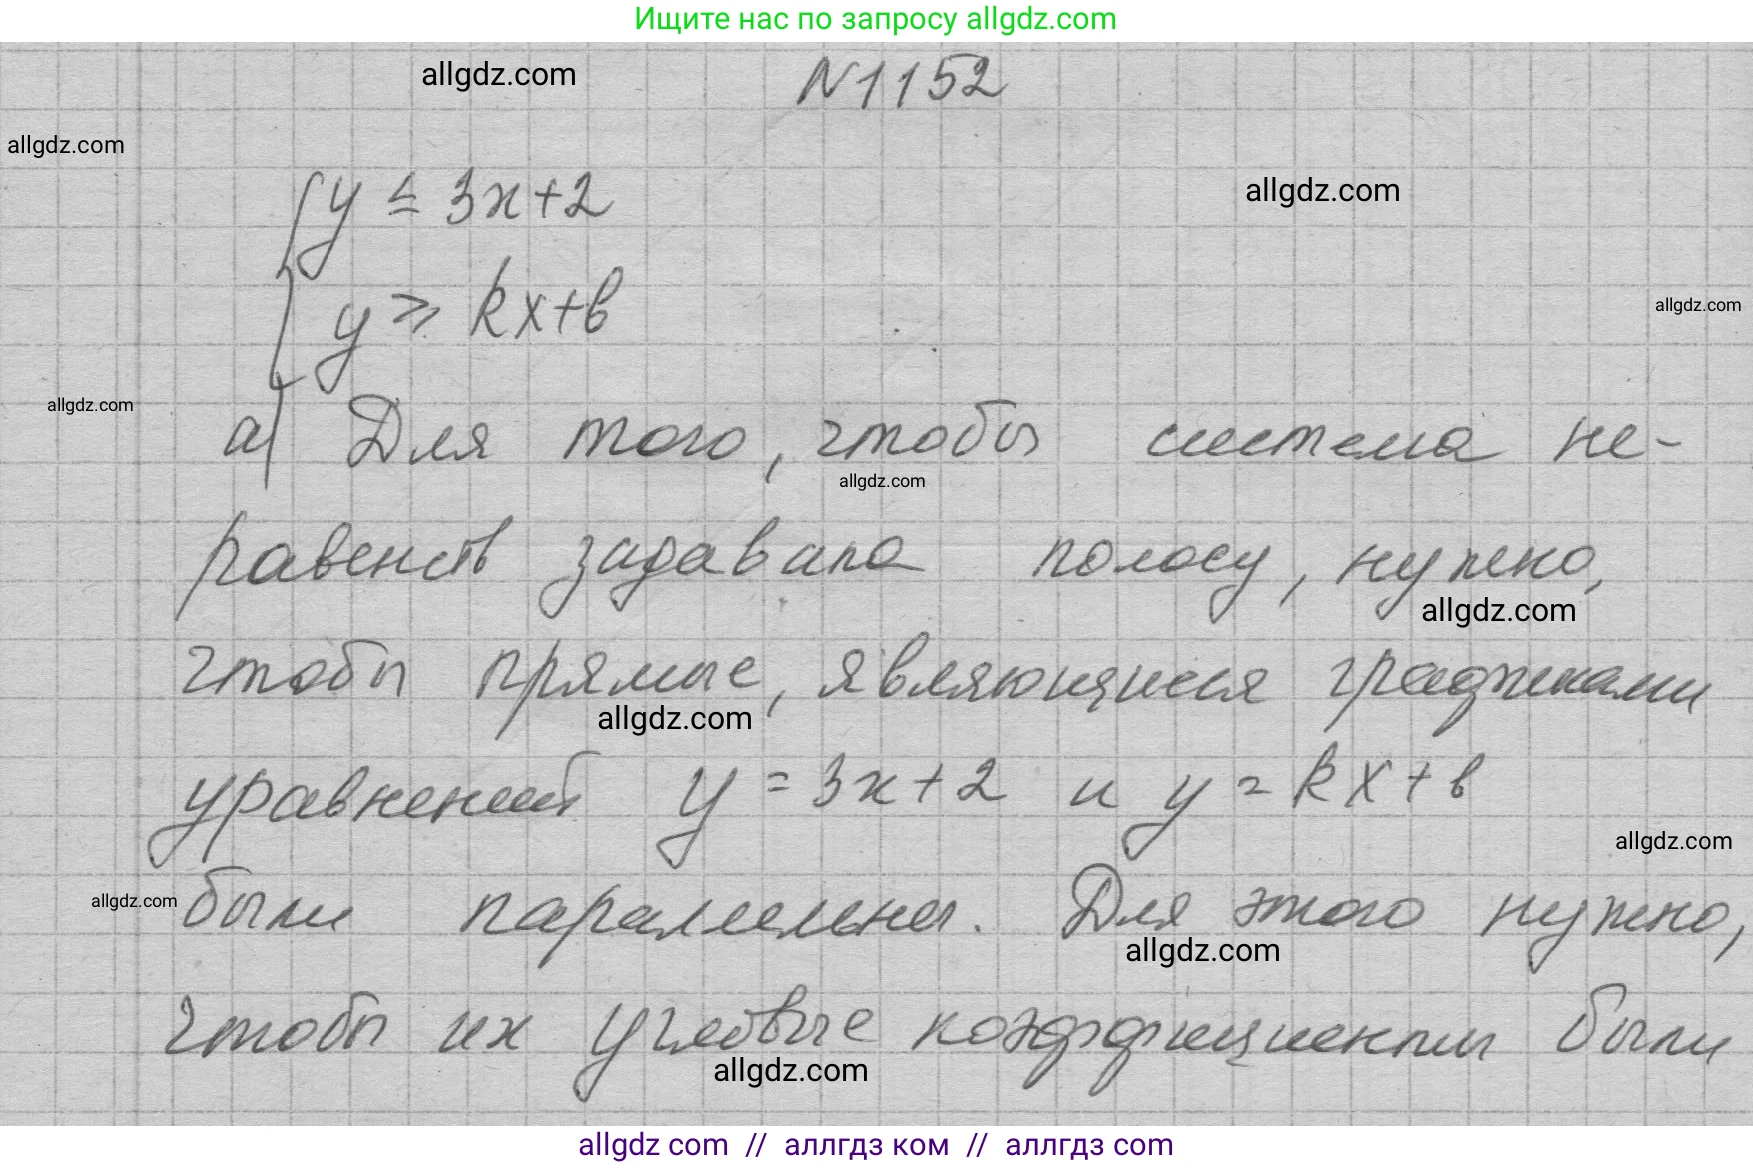 Ищите нас по запросу allgdz.com
allgdz.com
N1152
allgdz.com
y ≤ 3x+2
allgdz.com
y ⩾ kx+b
allgdz.com
allgdz.com
а) Для того, чтобы система не-
allgdz.com
равенств задавала полосу, нужно,
allgdz.com
чтобы прямые, являющиеся графиками
allgdz.com
уравнений y = 3x+2 и y = kx+b
allgdz.com
allgdz.com
были параллельны. Для этого нужно,
allgdz.com
чтобы их угловые коэффициенты были
allgdz.com
allgdz com // аллгдз ком // аллгдз com